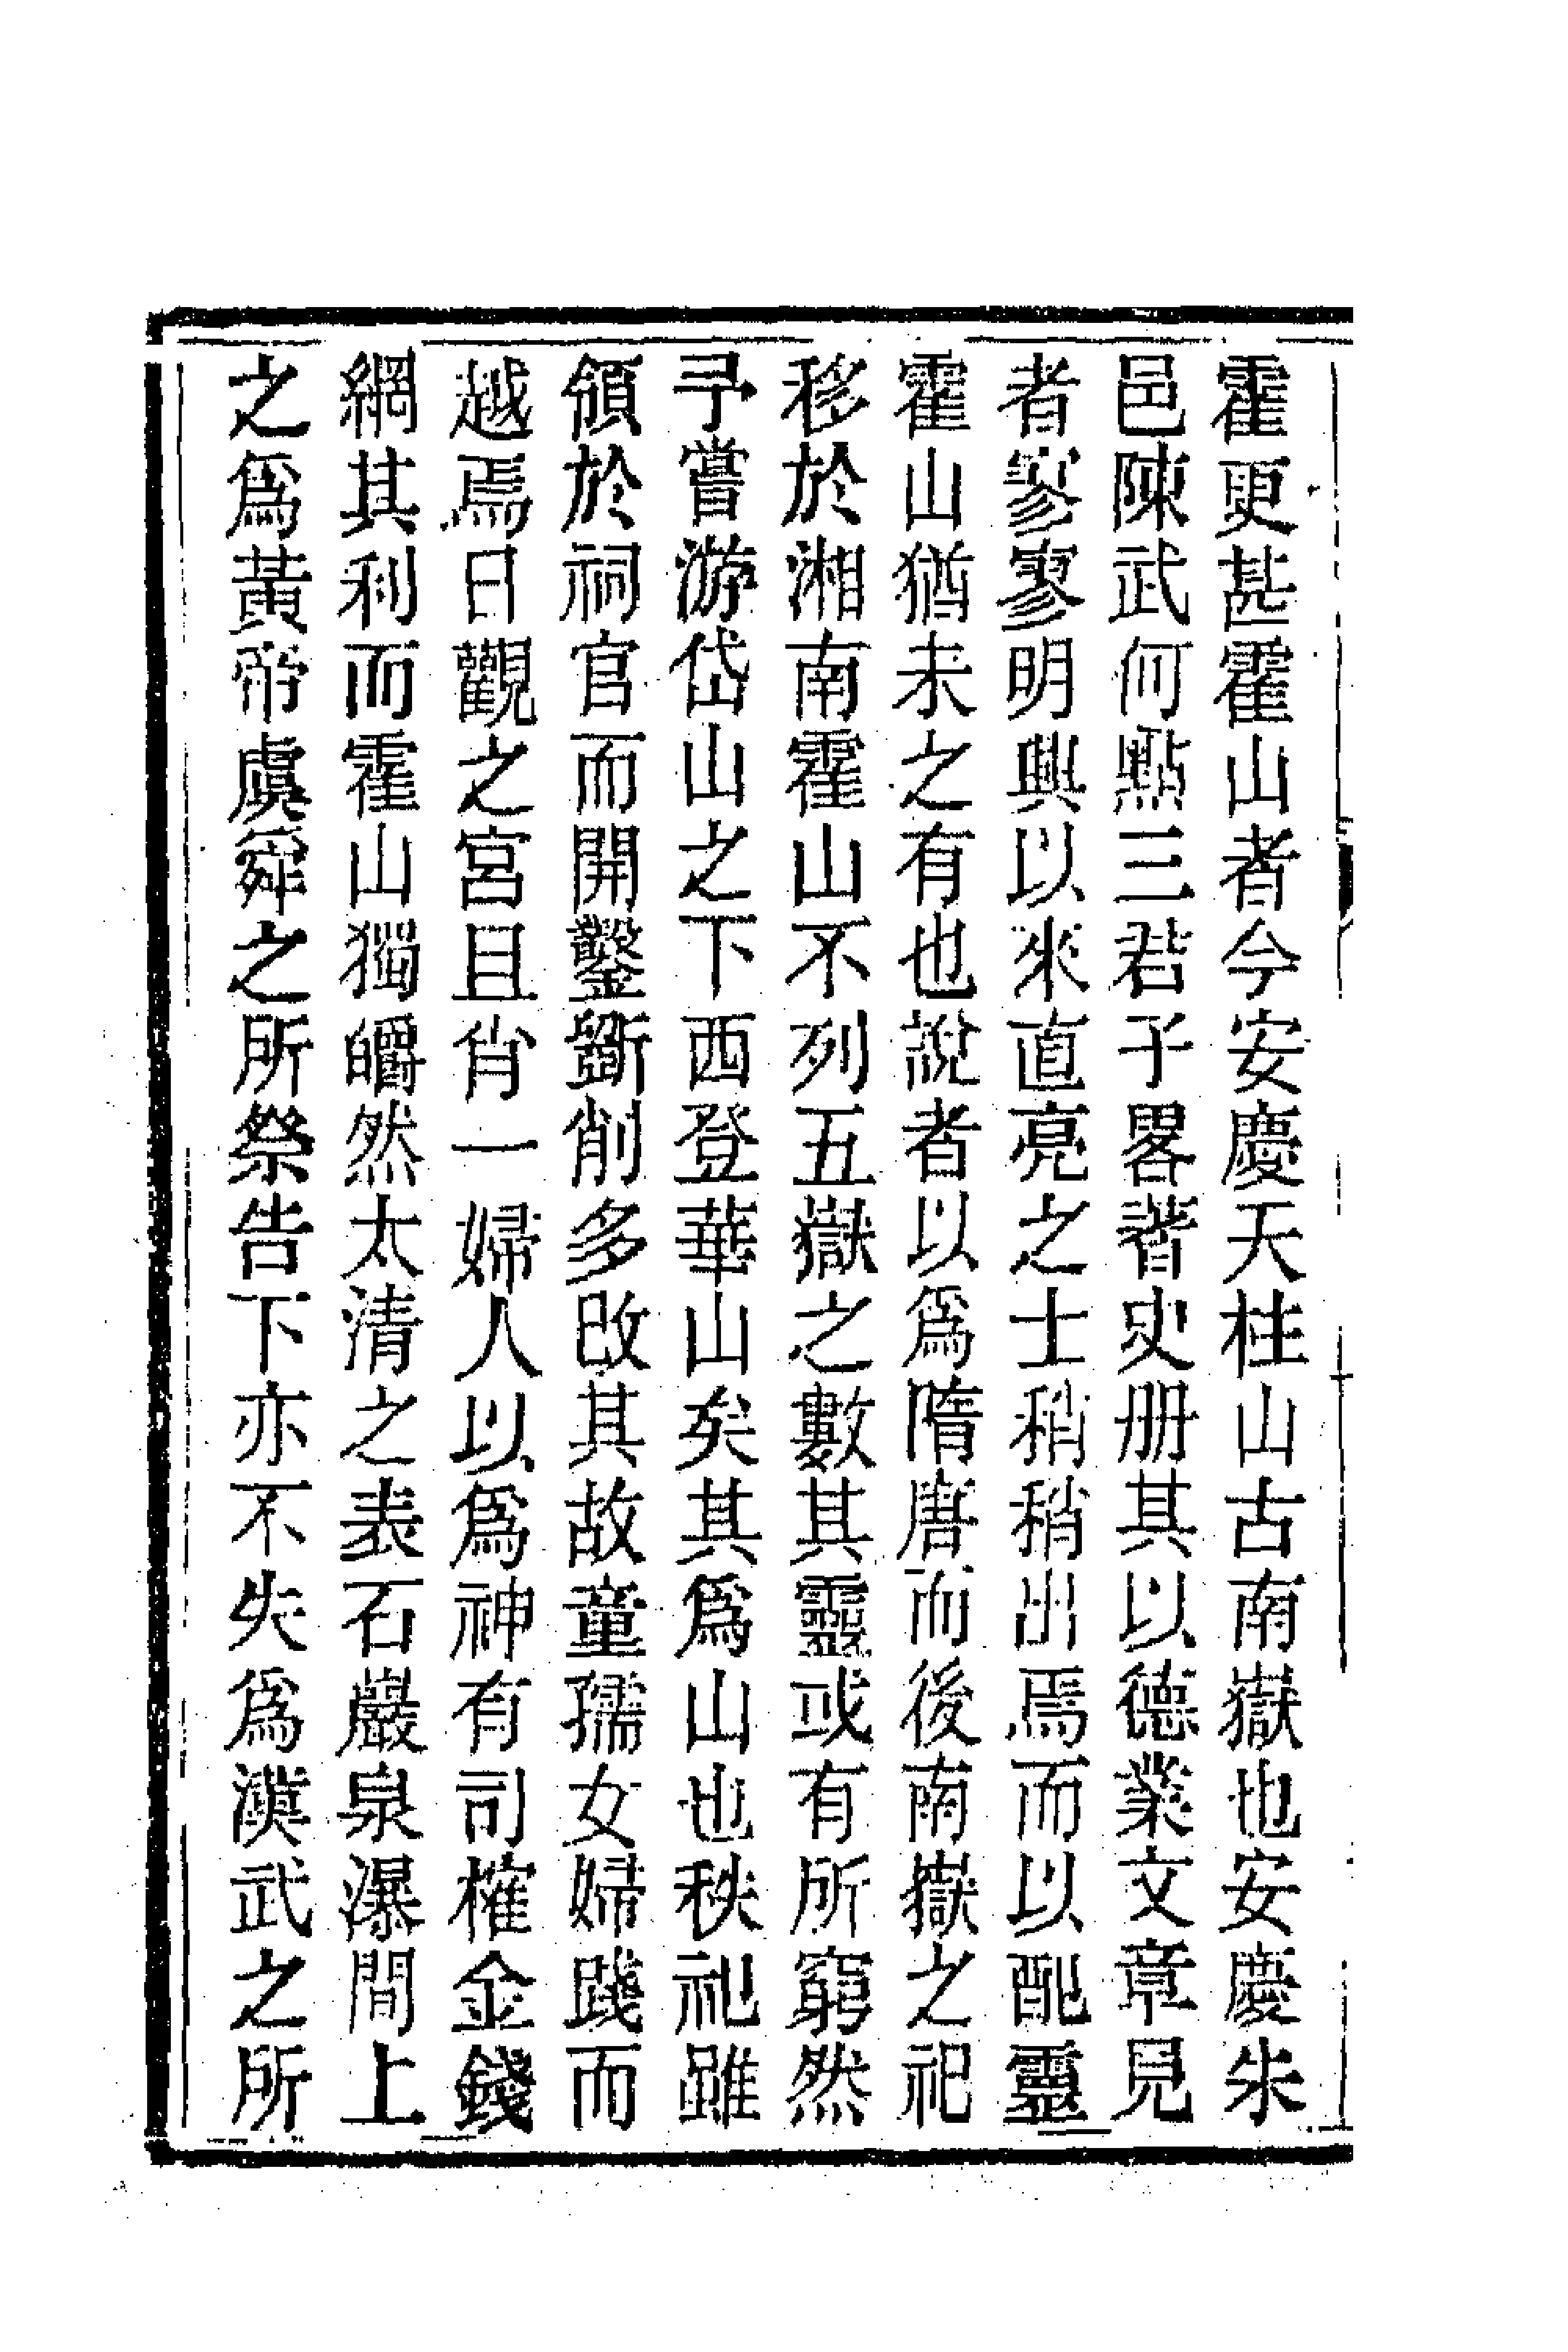 霍更甚霍山者今安慶天柱山古南嶽也安慶朱
邑陳武何點三君子畧著史册其以德業文章見
者寥寥明興以來直亮之士稍稍出焉而以配靈
霍山猶未之有也說者以爲隋唐而後南嶽之祀
移於湘南霍山不列五嶽之數其靈或有所窮然
予嘗游岱山之下西登華山矣其爲山也秩祀雖
領於祠官而開鑿斲削多改其故童孺女婦踐而
越焉日觀之宮且肖一婦人以爲神有司榷金錢
網其利而霍山獨皭然太清之表石巖泉瀑間上
之爲黃帝虞舜之所祭告下亦不失爲漢武之所